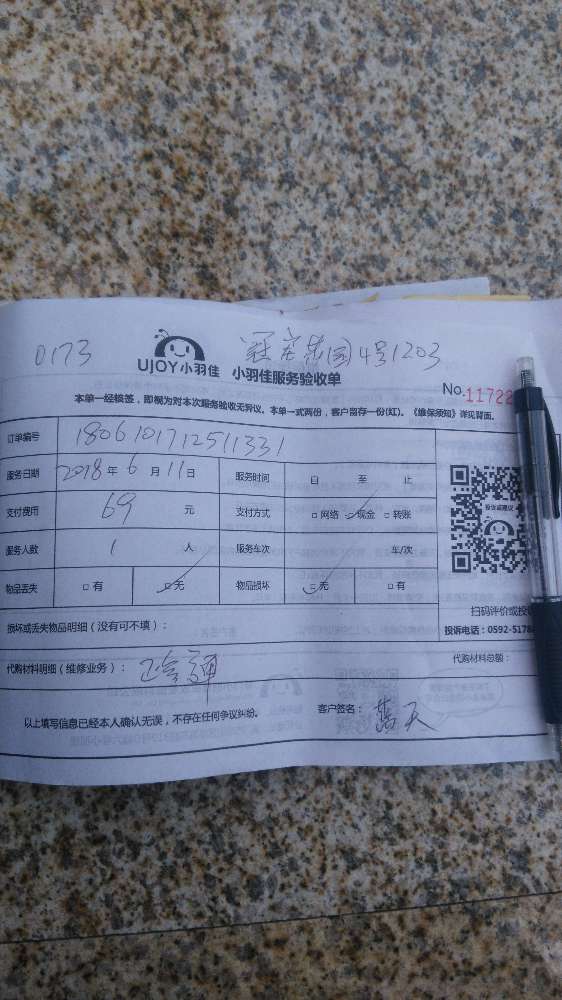 0173
冠宏花园4号1203
UJOY小羽佳 小羽佳服务验收单
No.11722
本单一经核签，即视为对本次服务验收无异议。本单一式两份，客户留存一份(红)。《维保须知》详见背面。
订单编号 1806101712511331
服务日期 2018年6月11日 服务时间 自 至 止
支付费用 69 元 支付方式 □网络 ☑现金 □转账
服务人数 1 人 服务车次 车/次
物品丢失 □有 ☑无 物品损坏 ☑无 □有
投诉或建议
扫码评价或投
损坏或丢失物品明细（没有可不填）：
投诉电话：0592-5178
代购材料明细（维修业务）： 代购材料总额：
以上填写信息已经本人确认无误，不存在任何争议纠纷。 客户签名： 蓝天